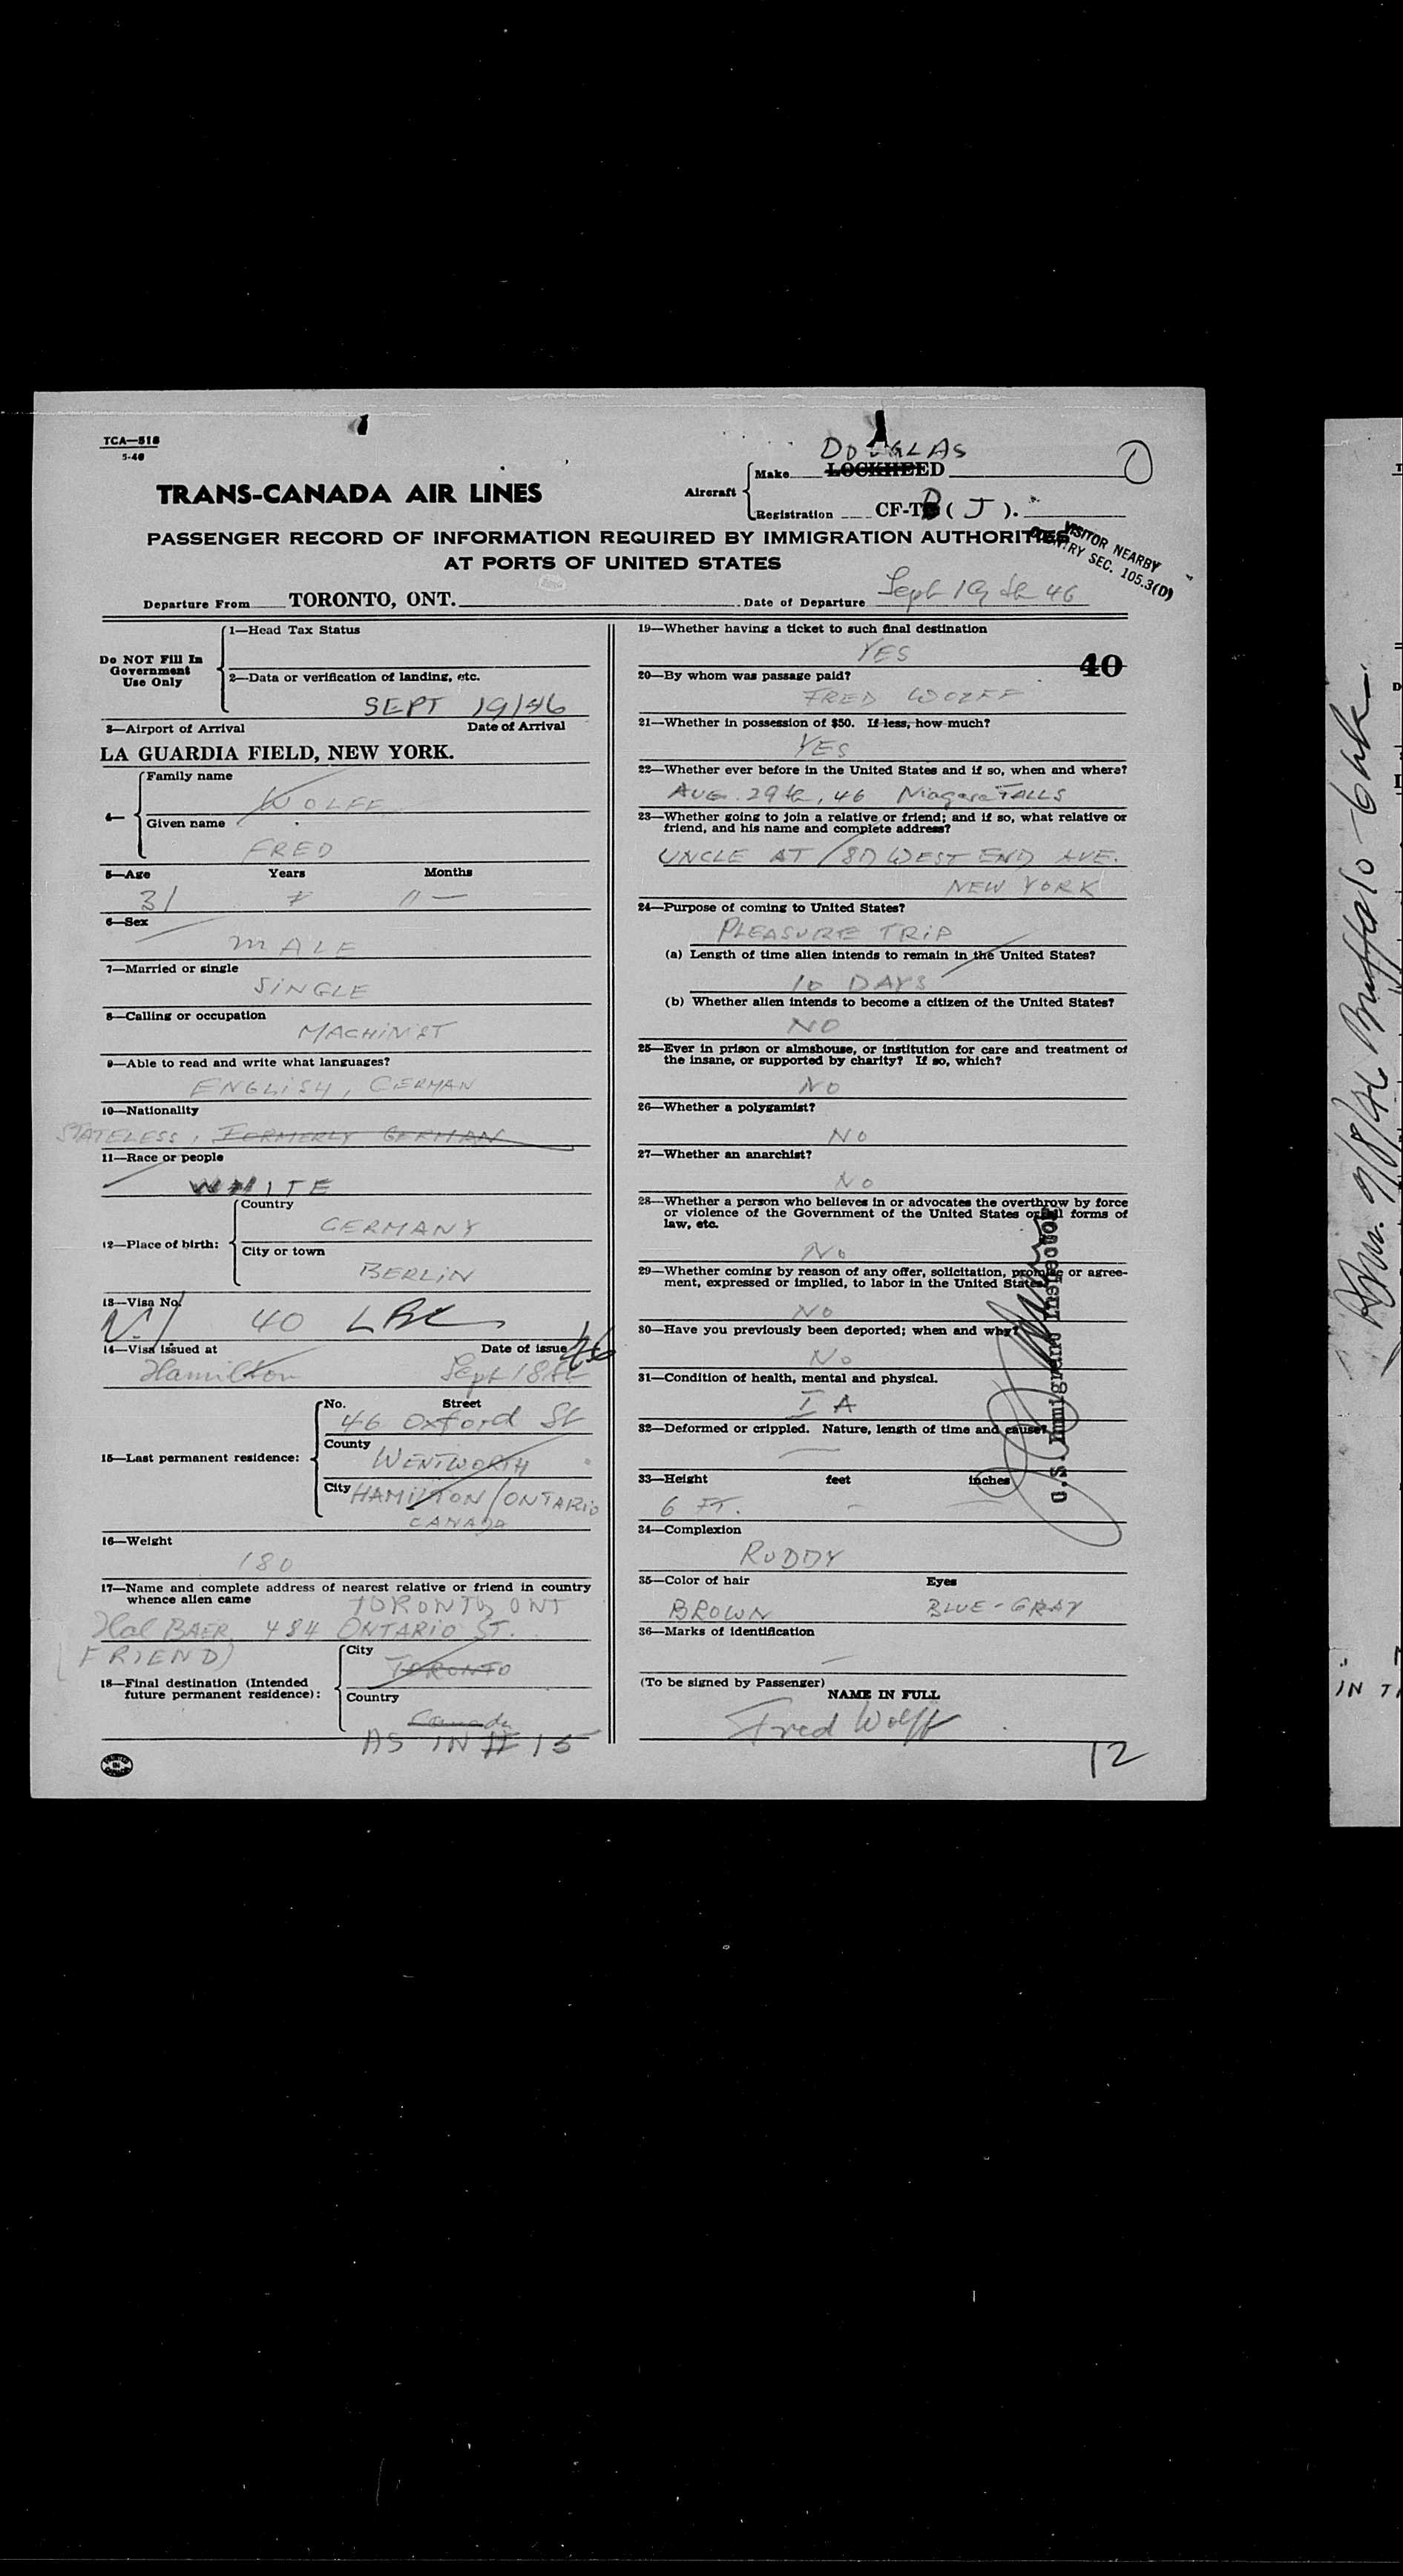 TCA—518
5-46
TRANS-CANADA AIR LINES
Aircraft
Make DOUGLAS LOCKHEED
Registration CF-T ( J ).
PASSENGER RECORD OF INFORMATION REQUIRED BY IMMIGRATION AUTHORITIES
AT PORTS OF UNITED STATES
VISITOR NEARBY
COUNTRY SEC. 105.3(D)
Departure From TORONTO, ONT. Date of Departure Sept 19th 46
Do NOT Fill In
Government
Use Only
1—Head Tax Status
2—Data or verification of landing, etc.
SEPT 19/46
3—Airport of Arrival Date of Arrival
LA GUARDIA FIELD, NEW YORK.
4—
Family name
WOLFF
Given name
FRED
5—Age Years Months
31
6—Sex
MALE
7—Married or single
SINGLE
8—Calling or occupation
MACHINIST
9—Able to read and write what languages?
ENGLISH, GERMAN
10—Nationality
STATELESS, FORMERLY GERMAN
11—Race or people
WHITE
12—Place of birth:
Country
GERMANY
City or town
BERLIN
13—Visa No.
V.I. 40
14—Visa issued at Date of issue
Hamilton Sept 18th 46
15—Last permanent residence:
No. Street
46 Oxford St
County
WENTWORTH
City HAMILTON / ONTARIO
CANADA
16—Weight
180
17—Name and complete address of nearest relative or friend in country
whence alien came TORONTO, ONT
Hal BAER, 484 ONTARIO ST.
(FRIEND)
18—Final destination (Intended
future permanent residence):
City
TORONTO
Country
Canada
AS IN # 15
PRINTED
IN
CANADA
19—Whether having a ticket to such final destination
YES
40
20—By whom was passage paid?
FRED WOLFF
21—Whether in possession of $50. If less, how much?
YES
22—Whether ever before in the United States and if so, when and where?
AUG. 29th, 46 Niagara FALLS
23—Whether going to join a relative or friend; and if so, what relative or
friend, and his name and complete address?
UNCLE AT WEST END AVE.
NEW YORK
24—Purpose of coming to United States?
PLEASURE TRIP
(a) Length of time alien intends to remain in the United States?
10 DAYS
(b) Whether alien intends to become a citizen of the United States?
NO
25—Ever in prison or almshouse, or institution for care and treatment of
the insane, or supported by charity? If so, which?
NO
26—Whether a polygamist?
NO
27—Whether an anarchist?
NO
28—Whether a person who believes in or advocates the overthrow by force
or violence of the Government of the United States or all forms of
law, etc.
NO
29—Whether coming by reason of any offer, solicitation, promise or agree-
ment, expressed or implied, to labor in the United States?
NO
30—Have you previously been deported; when and why?
NO
31—Condition of health, mental and physical.
I A
32—Deformed or crippled. Nature, length of time and cause?
—
33—Height feet inches
6 FT. — —
34—Complexion
RUDDY
35—Color of hair Eyes
BROWN BLUE-GRAY
36—Marks of identification
—
(To be signed by Passenger)
NAME IN FULL
Fred Wolff
U.S. Immigrant Inspector
12
Buffalo
IN